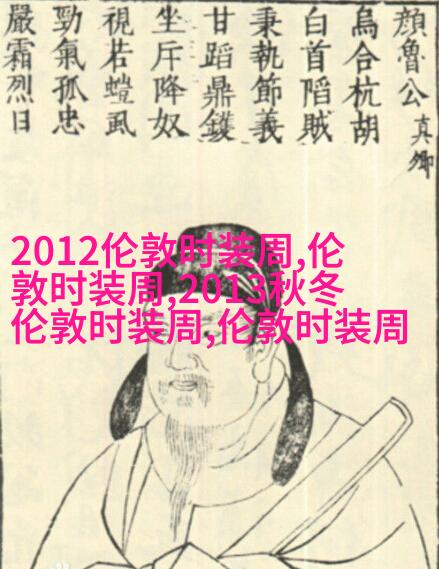 顔魯公真卿
烏合杭胡
白首陷賊
秉執節義
甘蹈鼎鑊
坐斥降奴
視若螘虱
勁氣孤忠
嚴霜烈日
2012伦敦时装周,伦
敦时装周,2013秋冬
伦敦时装周,伦敦时装周